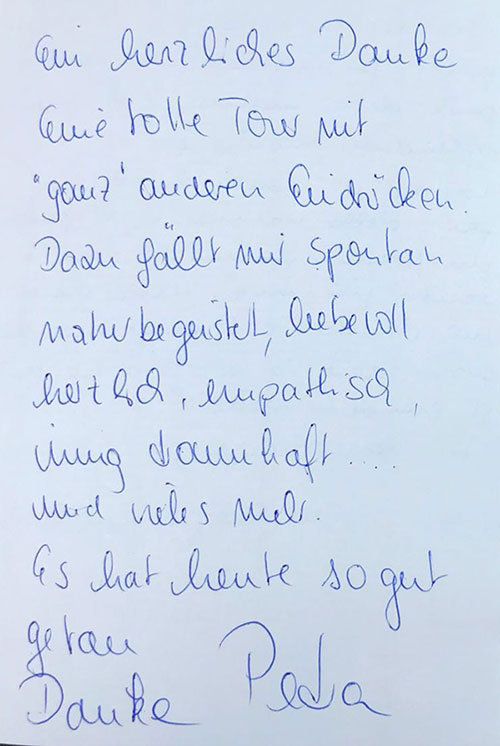 Ein herzliches Danke
Eine tolle Tour mit
"ganz" anderen Eindrücken.
Dazu fällt mir spontan
naturbegeistert, liebevoll
herzlich, empathisch,
und vieles mehr.
Es hat heute so gut
getan
Danke Petra